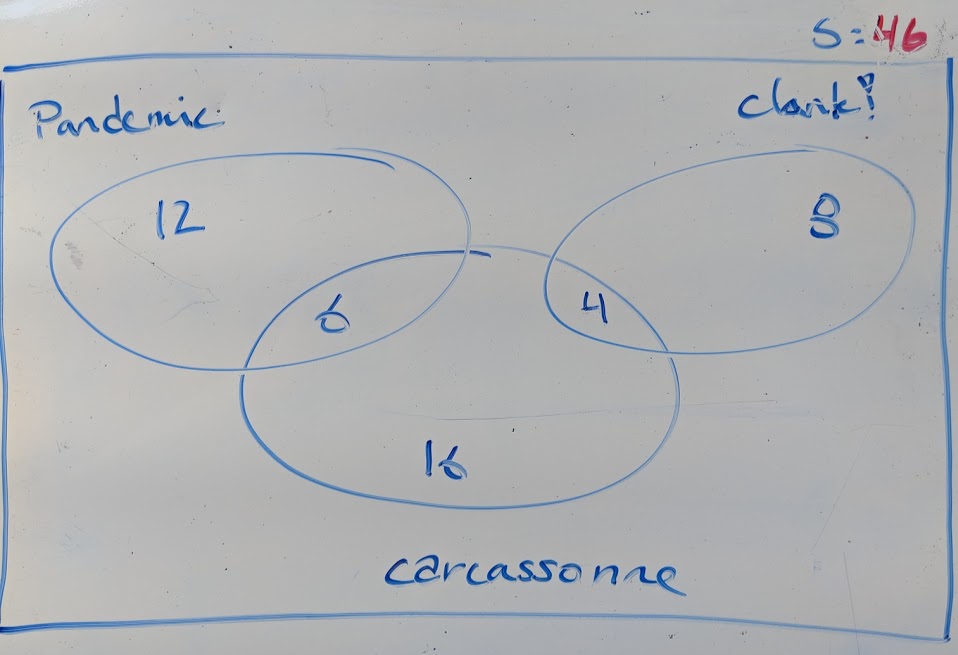 S=46
Pandemic
Clank!
12
8
6
4
16
carcassonne